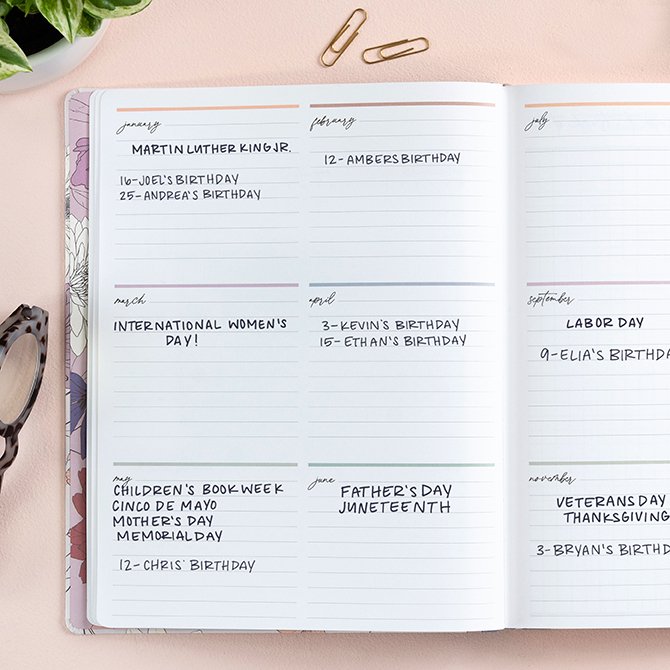 january
MARTIN LUTHER KING JR.
16-JOEL'S BIRTHDAY
25-ANDREA'S BIRTHDAY
february
12-AMBERS BIRTHDAY
march
INTERNATIONAL WOMEN'S
DAY!
april
3-KEVIN'S BIRTHDAY
15-ETHAN'S BIRTHDAY
may
CHILDREN'S BOOK WEEK
CINCO DE MAYO
MOTHER'S DAY
MEMORIAL DAY
12-CHRIS' BIRTHDAY
june
FATHER'S DAY
JUNETEENTH
july
september
LABOR DAY
9-ELIA'S BIRTHDA
november
VETERANS DAY
THANKSGIVING
3-BRYAN'S BIRTHD